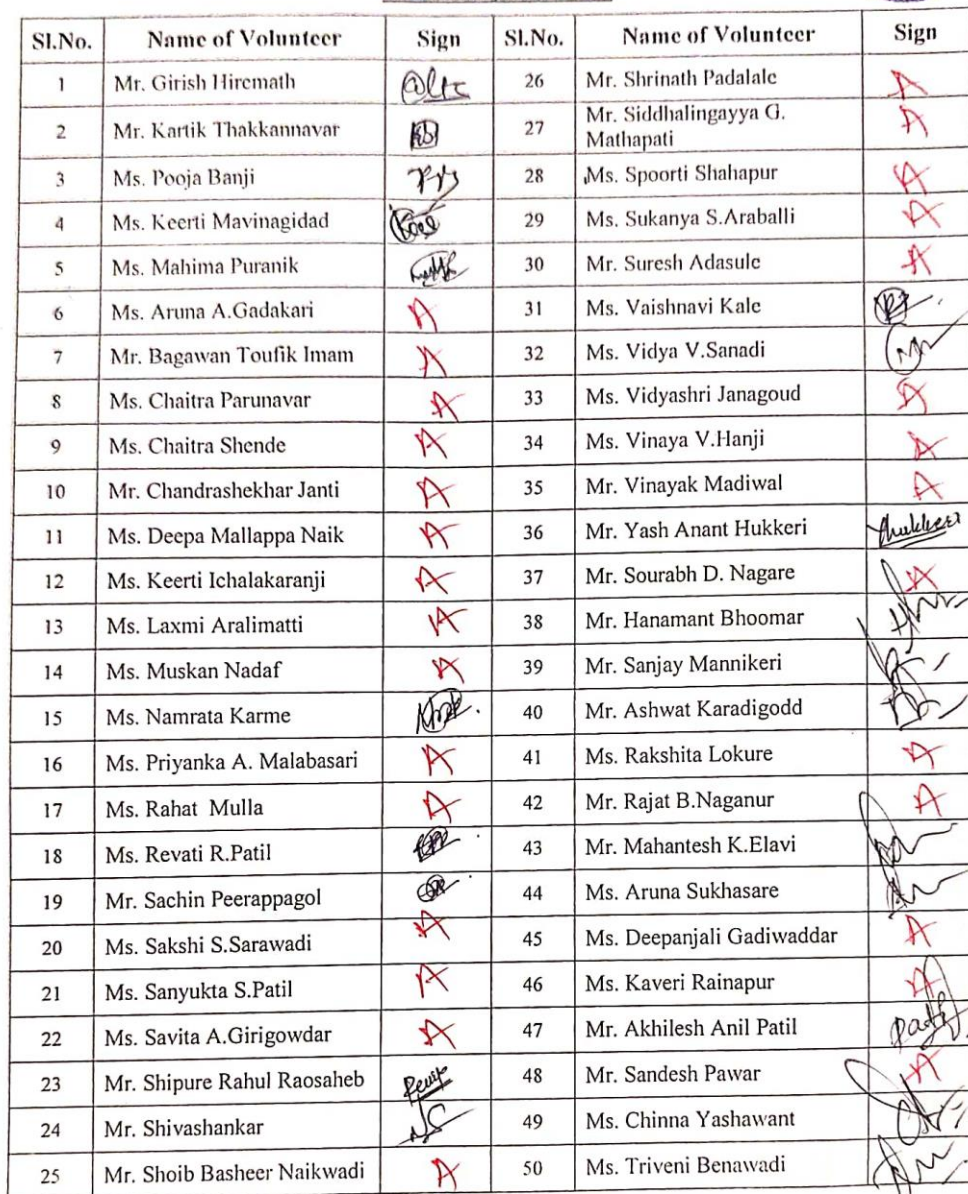 Sl.No. Name of Volunteer Sign Sl.No. Name of Volunteer Sign
1 Mr. Girish Hiremath 26 Mr. Shrinath Padalale A
2 Mr. Kartik Thakkannavar 27 Mr. Siddhalingayya G.
Mathapati A
3 Ms. Pooja Banji 28 Ms. Spoorti Shahapur A
4 Ms. Keerti Mavinagidad 29 Ms. Sukanya S.Araballi A
5 Ms. Mahima Puranik 30 Mr. Suresh Adasule A
6 Ms. Aruna A.Gadakari A 31 Ms. Vaishnavi Kale
7 Mr. Bagawan Toufik Imam A 32 Ms. Vidya V.Sanadi
8 Ms. Chaitra Parunavar A 33 Ms. Vidyashri Janagoud A
9 Ms. Chaitra Shende A 34 Ms. Vinaya V.Hanji A
10 Mr. Chandrashekhar Janti A 35 Mr. Vinayak Madiwal A
11 Ms. Deepa Mallappa Naik A 36 Mr. Yash Anant Hukkeri Hukkeri
12 Ms. Keerti Ichalakaranji A 37 Mr. Sourabh D. Nagare A
13 Ms. Laxmi Aralimatti A 38 Mr. Hanamant Bhoomar
14 Ms. Muskan Nadaf A 39 Mr. Sanjay Mannikeri
15 Ms. Namrata Karme 40 Mr. Ashwat Karadigodd
16 Ms. Priyanka A. Malabasari A 41 Ms. Rakshita Lokure A
17 Ms. Rahat Mulla A 42 Mr. Rajat B.Naganur A
18 Ms. Revati R.Patil 43 Mr. Mahantesh K.Elavi
19 Mr. Sachin Peerappagol 44 Ms. Aruna Sukhasare
20 Ms. Sakshi S.Sarawadi A 45 Ms. Deepanjali Gadiwaddar A
21 Ms. Sanyukta S.Patil A 46 Ms. Kaveri Rainapur A
22 Ms. Savita A.Girigowdar A 47 Mr. Akhilesh Anil Patil
23 Mr. Shipure Rahul Raosaheb 48 Mr. Sandesh Pawar A
24 Mr. Shivashankar 49 Ms. Chinna Yashawant
25 Mr. Shoib Basheer Naikwadi A 50 Ms. Triveni Benawadi